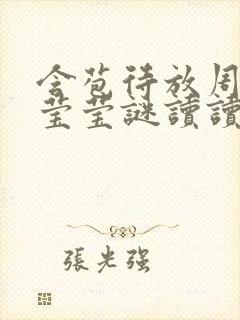 含苞待放周
莹莹謎讀讀
張光强